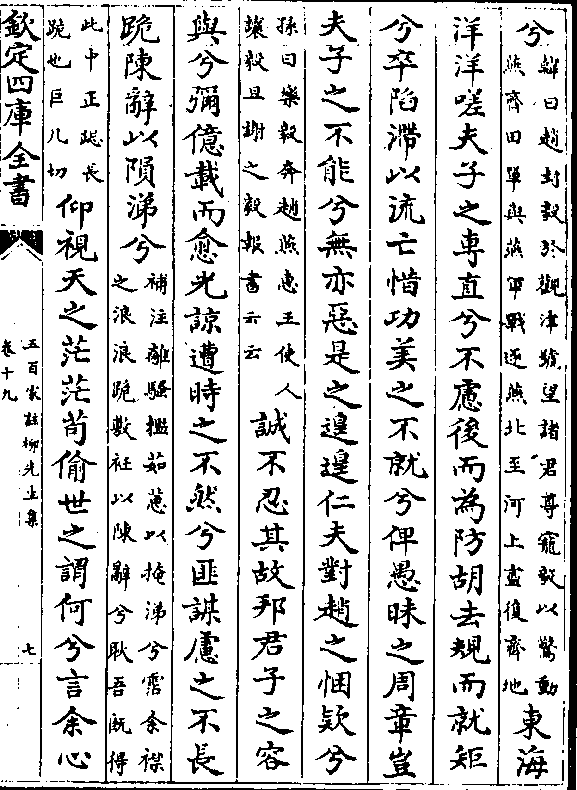 兮韓曰趙封毅於觀津號望諸君尊寵毅以驚動
燕齊田單與燕軍戰逐燕北至河上盡復齊地東海
洋洋嗟夫子之專直兮不慮後而為防胡去規而就矩
兮卒陷滯以流亡惜功美之不就兮俾愚昧之周章豈
夫子之不能兮無亦惡是之遑遑仁夫對趙之悃款兮
孫曰樂毅奔趙燕惠王使人
讓毅且謝之毅報書云云誠不忍其故邦君子之容
與兮彌億載而愈光諒遭時之不然兮匪謀慮之不長
跪陳辭以隕涕兮補注離騷攬茹蕙以掩涕兮霑余襟
之浪浪跪敷衽以陳辭兮耿吾既得
此中正跽長
跪也巨几切仰視天之茫茫苟偷世之謂何兮言余心
欽定四庫全書
五百家註柳先生集
卷十九
七